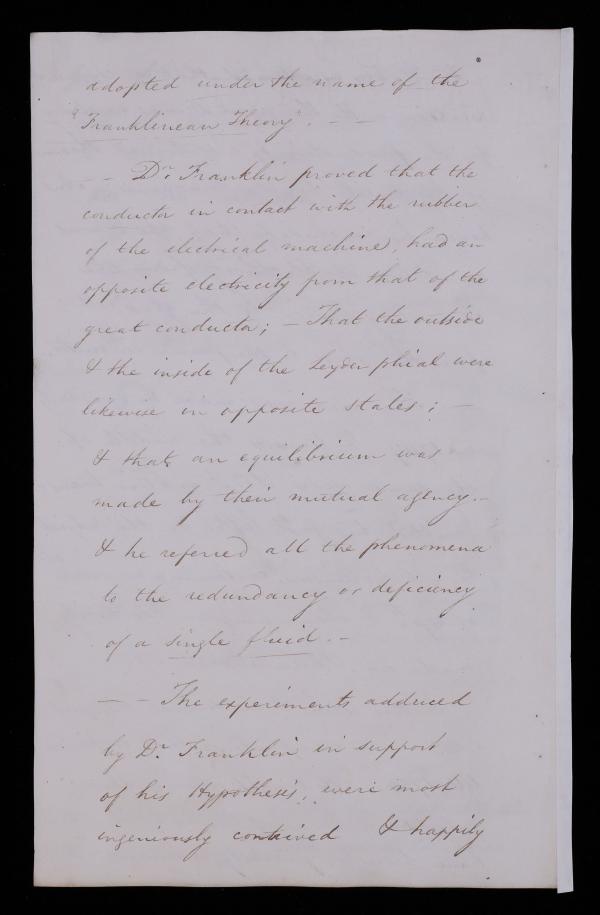 adopted under the name of the
"Franklinean Theory". — —
— — Dr. Franklin proved that the
conductor in contact with the rubber
of the electrical machine, had an
opposite electricity from that of the
great conductor; — That the outside
& the inside of the Leyden phial were
likewise in opposite states; —
& that an equilibrium was
made by their mutual agency. —
& he referred all the phenomena
to the redundancy or deficiency
of a single fluid. —
— — The experiments adduced
by Dr. Franklin in support
of his Hypothesis, were most
ingeniously contrived & happily